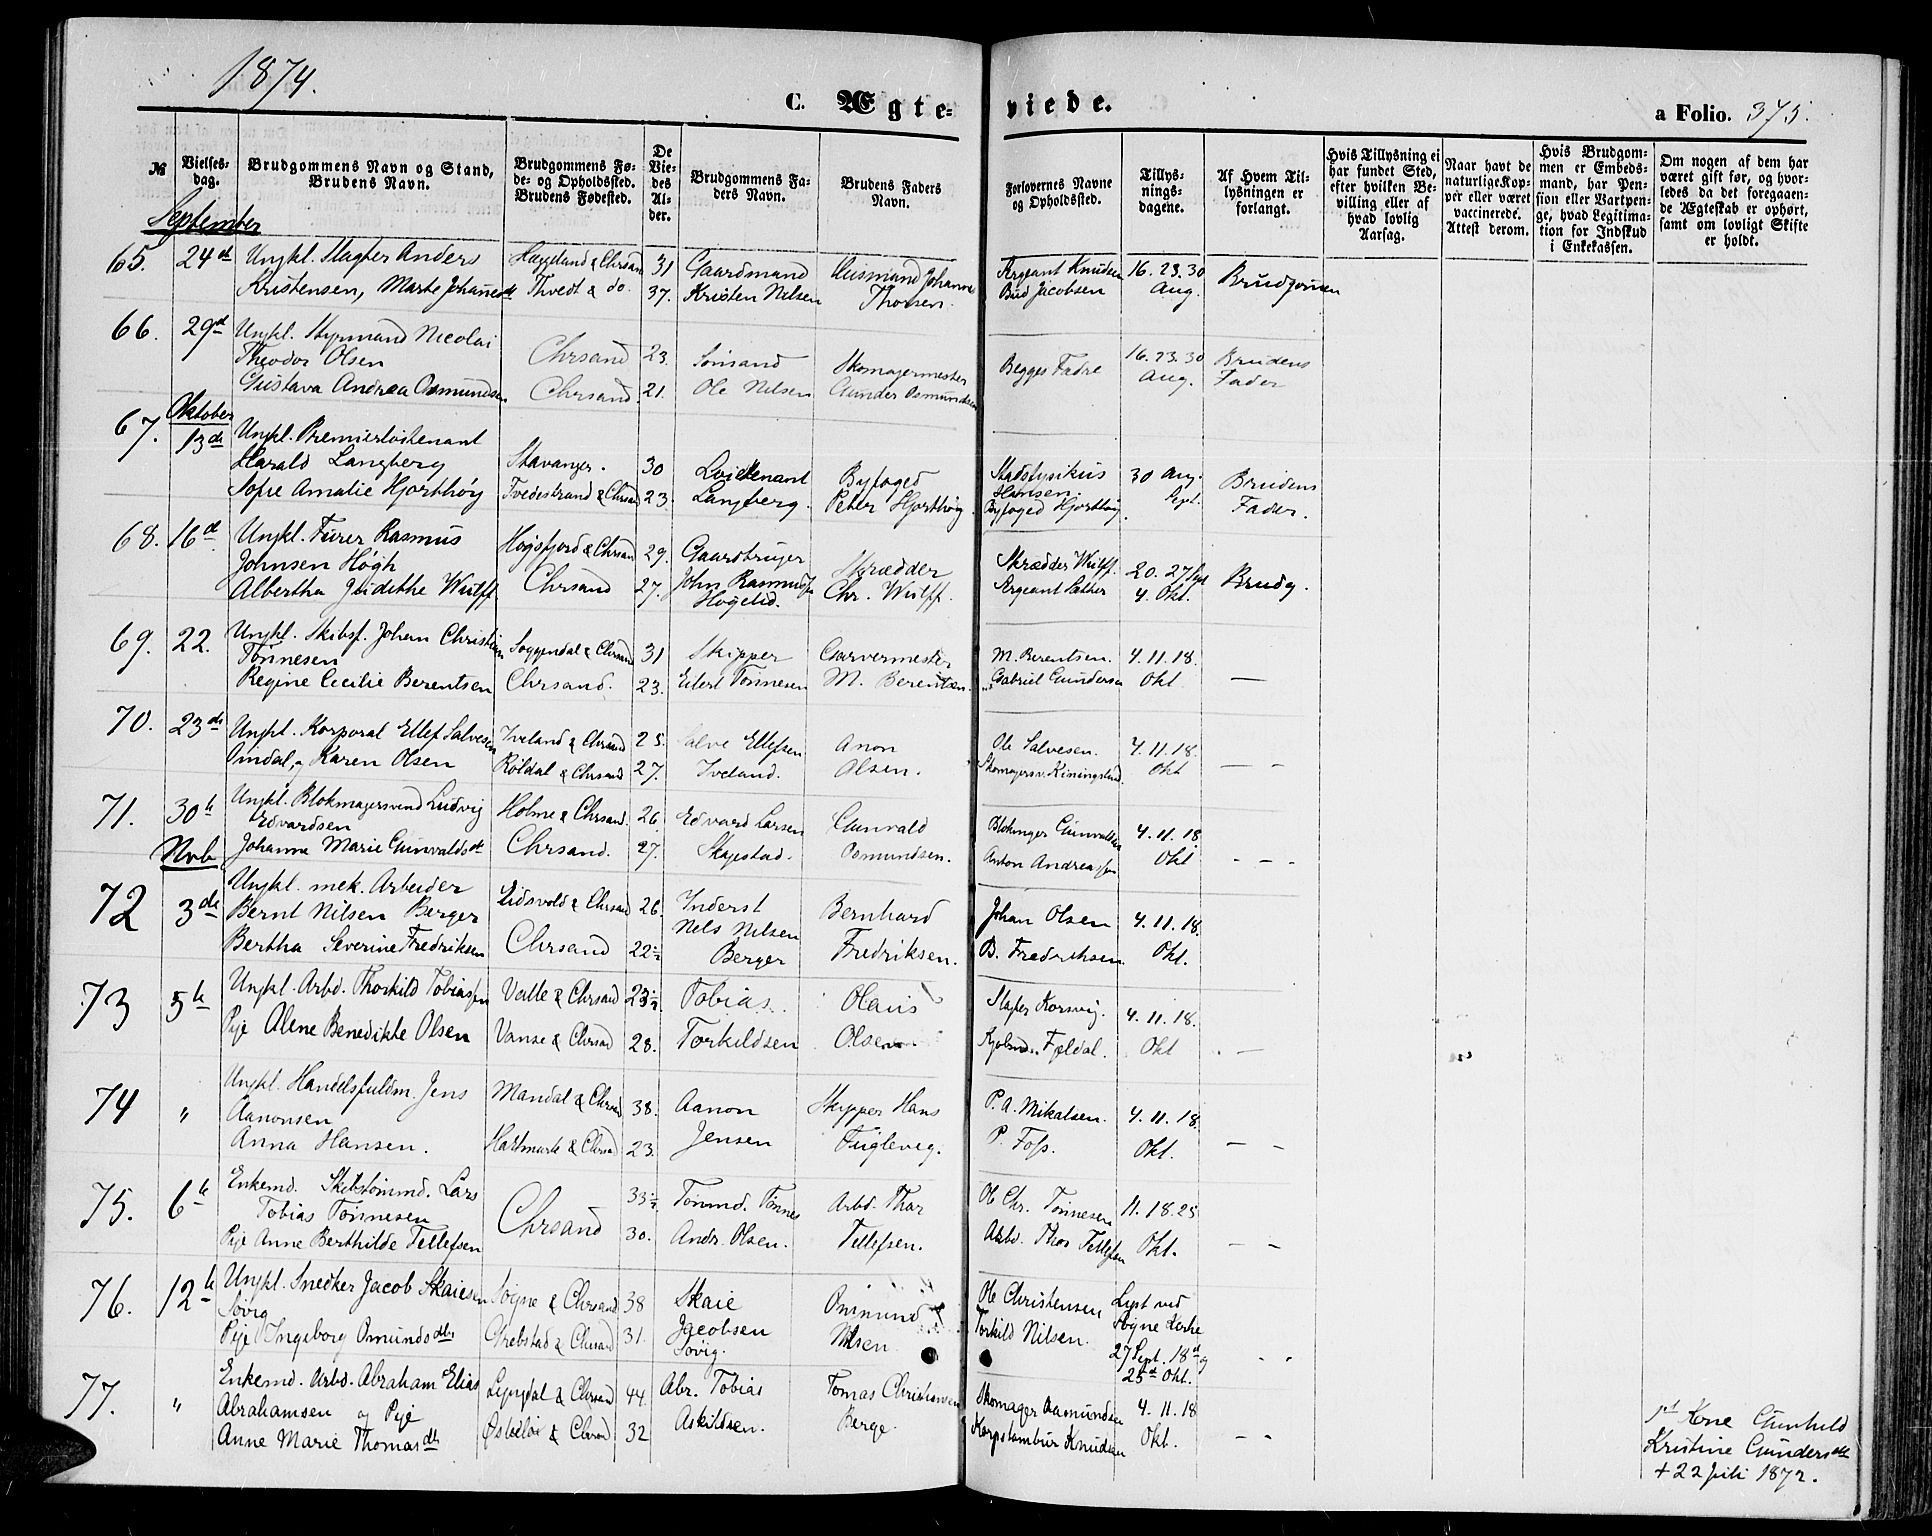 1874.
C. Ægte-
viede.
a Folio. 375.
№
Vielses-
dag.
Brudgommens Navn og Stand,
Brudens Navn.
Brudgommens Fø-
de- og Opholdssted.
Brudens Fødested.
De
Vie-
des
Al-
der.
Brudgommens Fa-
ders Navn.
Brudens Faders
Navn.
Forlovernes Navne
og Opholdssted.
Tillys-
nings-
dagene.
Af Hvem Til-
lysningen er
forlangt.
Hvis Tillysning ei
har fundet Sted,
efter hvilken Be-
villing eller af
hvad lovlig
Aarsag.
Naar havt de
naturlige Kop-
per eller været
vaccinerede.
Attest derom.
Hvis Brudgom-
men er Embeds-
mand, har Pen-
sion eller Vartpen-
ge, hvad Legitima-
tion for Indskud
i Enkekassen.
Om nogen af dem har
været gift før, og hvor-
ledes da det foregaaen-
de Ægteskab er ophørt,
samt om lovligt Skifte
er holdt.
September
65. 24de Ungkl. Slagter Anders Hægeland & Chrsand 31 Gaardmand Huusmand Johanne Sergeant Knudsen 16. 23. 30 Brudgommen
Kristensen, Marte Johannesdt Thvedt & do. 37. Kristen Nilsen Thorsen. Bud Jacobsen Aug.
66. 29de Ungkl. Styrmand Nicolai
Theodor Olsen Chrsand 23. Sømand Skomagermester Begges Fadre 16. 23. 30 Brudens
Gustava Andrea Osmundsen Chrsand. 21. Ole Nilsen Gunder Osmundsen Aug. Fader
Oktober
67. 13de Ungkl. Premierløitenant
Harald Langberg Stavanger. 30 Løitenant Byfoged Stadsfysikus 30 Aug. Brudens
Sofie Amalie Hjorthøy Tvedestrand & Chrsand 23. Langberg. Peter Hjorthøy. Hansen. Sept. Fader.
Byfoged Hjorthøy
68. 16de Ungkl. Furer Rasmus Høgsfjord & Chrsand 29. Gaardbruger
Johnsen Høgh Skrædder Skrædder Wulff. 20. 27 Sept Brudg.
Albertha Judithe Wulff Chrsand 27. John Rasmussen Chr. Wulff. Sergeant Sather 4. Okt.
Høgelid.
69. 22. Ungkl. Skibsf. Johan Christian Soggendal & Chrsand 31 Skipper Garvermester M. Berentsen. 4. 11. 18.
Tønnesen
Regine Cecilie Berentsen Chrsand. 23. Eilert Tønnesen M. Berentsen. Gabriel Gundersen Okt. —
70. 23de Ungkl. Korporal Ellef Salvesen Iveland & Chrsand 25. Salve Ellefsen Anon Ole Salvesen. 4. 11. 18.
Omdal, og Karen Olsen Røldal & Chrsand 27. Iveland. Olsen. Skomagersv. Kiningsland Okt — —
71. 30te Ungkl. Blokmagersvend Ludvig Holme & Chrsand. 26. Edvard Larsen Gunvald Blokmager Gunvaldsen 4. 11. 18.
Edvardsen
Johanne Marie Gunvaldsdt Chrsand. 27. Skagestad. Osmundsen. Anton Andreassen Okt — — —
Nvb
72 3de Ungkl. mek. Arbeider Eidsvold & Chrsand 26. Inderst Bernhard Johan Olsen 4. 11. 18.
Bernt Nilsen Berger Nels Nilsen
Bertha Severine Fredriksen Chrsand 22½ Berger Fredriksen. B. Fredriksen Okt.
73 5te Ungkl. Arbd. Thorkild Tobiassen Valle & Chrsand 23½ Tobias Olaus Slagter Korsvig. 4. 11. 18.
Pige Alene Benedikte Olsen Vanse & Chrsand 28. Torkildsen Olsen Fjeldal. Okt —
74 " Ungkl. Handelsfuldm. Jens Mandal & Chrsand 38. Aanon Skipper Hans P. A. Mikalsen. 4. 11. 18.
Aanonsen
Anna Hansen. Hartmark & Chrsand 23. Jensen Fuglevig. P. Foss. Okt. — —
75. 6te Enkemd. Skibstømmd. Lars Chrsand 33½ Tømmd. Tønnes Arbd. Thor Ole Chr. Tønnesen 11. 18. 25
Tobias Tønnesen
Pige Anne Berthilde Tellefsen 30. Andr. Olsen. Tellefsen. Arbd. Thor Tellefsen Okt. — —
76. 12te Ungkl. Snedker Jacob Skaiesen Søgne & Chrsand 38 Skaie Osmund Ole Christensen Lyst ved
Søvig Søgne Kirke
Pige Ingeborg Osmundsdtr Grebstad & Chrsand 31. Jacobsen Nilsen Torkild Nilsen. 27 Sept. 18de og
Søvig. 25de Okt.
77. " Enkemd. Arbd. Abraham Elias Lyngdal & Chrsand 44. Abr. Tobias Tomas Christiansen Skomager Aamundsen 4. 11. 18
Abrahamsen og Pige
Anne Marie Thomasdtr Østeløi & Chrsand 32 Askildsen. Berge. Korpstambur Knudsen Okt. — —
1st Kone Gunhild
Kristine Gundersdt
+ 22 Juli 1872.